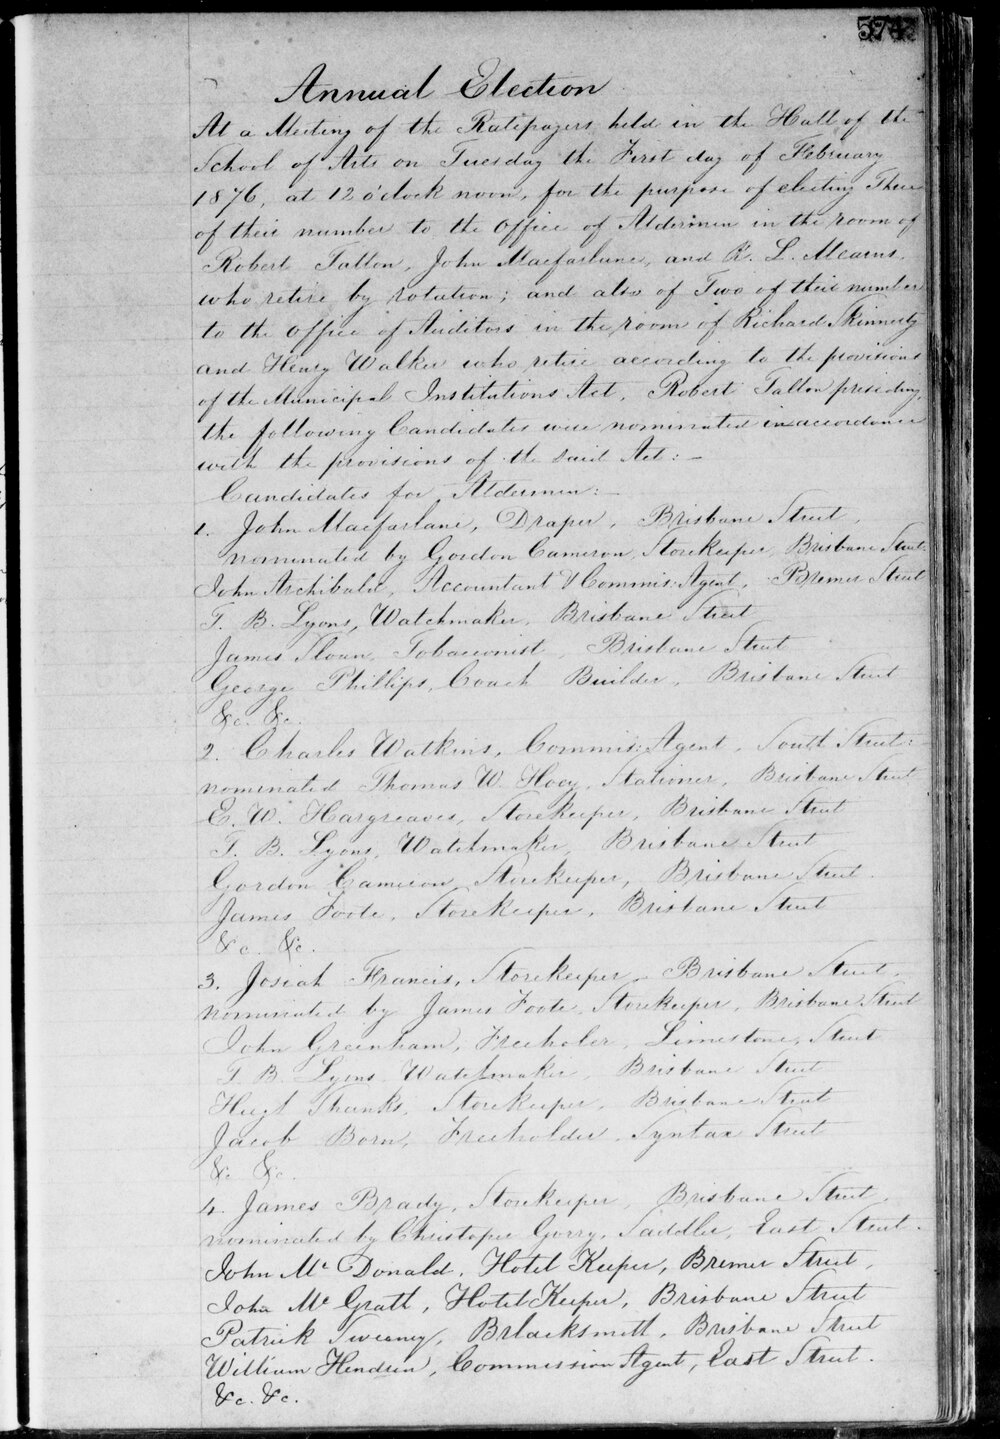 574
Annual Election
At a Meeting of the Ratepayers held in the Hall of the
School of Arts on Tuesday the First day of February
1876, at 12 o'clock noon, for the purpose of electing Three
of their number to the Office of Aldermen in the room of
Robert Tallon, John Macfarlane, and R. L. Mearns,
who retire by rotation; and also of Two of their number
to the office of Auditors in the room of Richard Skinnerty
and Henry Walker who retire according to the provisions
of the Municipal Institutions Act, Robert Tallon presiding,
the following Candidates were nominated in accordance
with the provisions of the said Act:—
Candidates for Aldermen:—
1. John Macfarlane, Draper, Brisbane Street,
nominated by Gordon Cameron, Storekeeper, Brisbane Street.
John Archibald, Accountant & Commis: Agent, Bremer Street
T. B. Lyons, Watchmaker, Brisbane Street
James Sloan, Tobacconist, Brisbane Street
George Phillips, Coach Builder, Brisbane Street
&c. &c.
2. Charles Watkins, Commis: Agent, South Street:
nominated Thomas W. Hoey, Stationer, Brisbane Street
E. W. Hargreaves, Storekeeper, Brisbane Street
T. B. Lyons, Watchmaker, Brisbane Street
Gordon Cameron, Storekeeper, Brisbane Street.
James Foote, Storekeeper, Brisbane Street
&c. &c.
3. Josiah Francis, Storekeeper, Brisbane Street.
nominated by James Foote, Storekeeper, Brisbane Street
John Greenham, Freeholer, Limestone, Street
T. B. Lyons, Watchmaker, Brisbane Street
Hugh Shanks, Storekeeper, Brisbane Street
Jacob Born, Freeholder, Syntax Street
&c &c.
4. James Brady, Storekeeper, Brisbane Street,
nominated by Christoper Gorry, Saddler, East Street.
John Mc Donald, Hotel Keeper, Bremer Street,
John Mc Grath, Hotel Keeper, Brisbane Street
Patrick Sweeney, Brlacksmith, Brisbane Street
William Hendren, Commission Agent, East Street.
&c. &c.